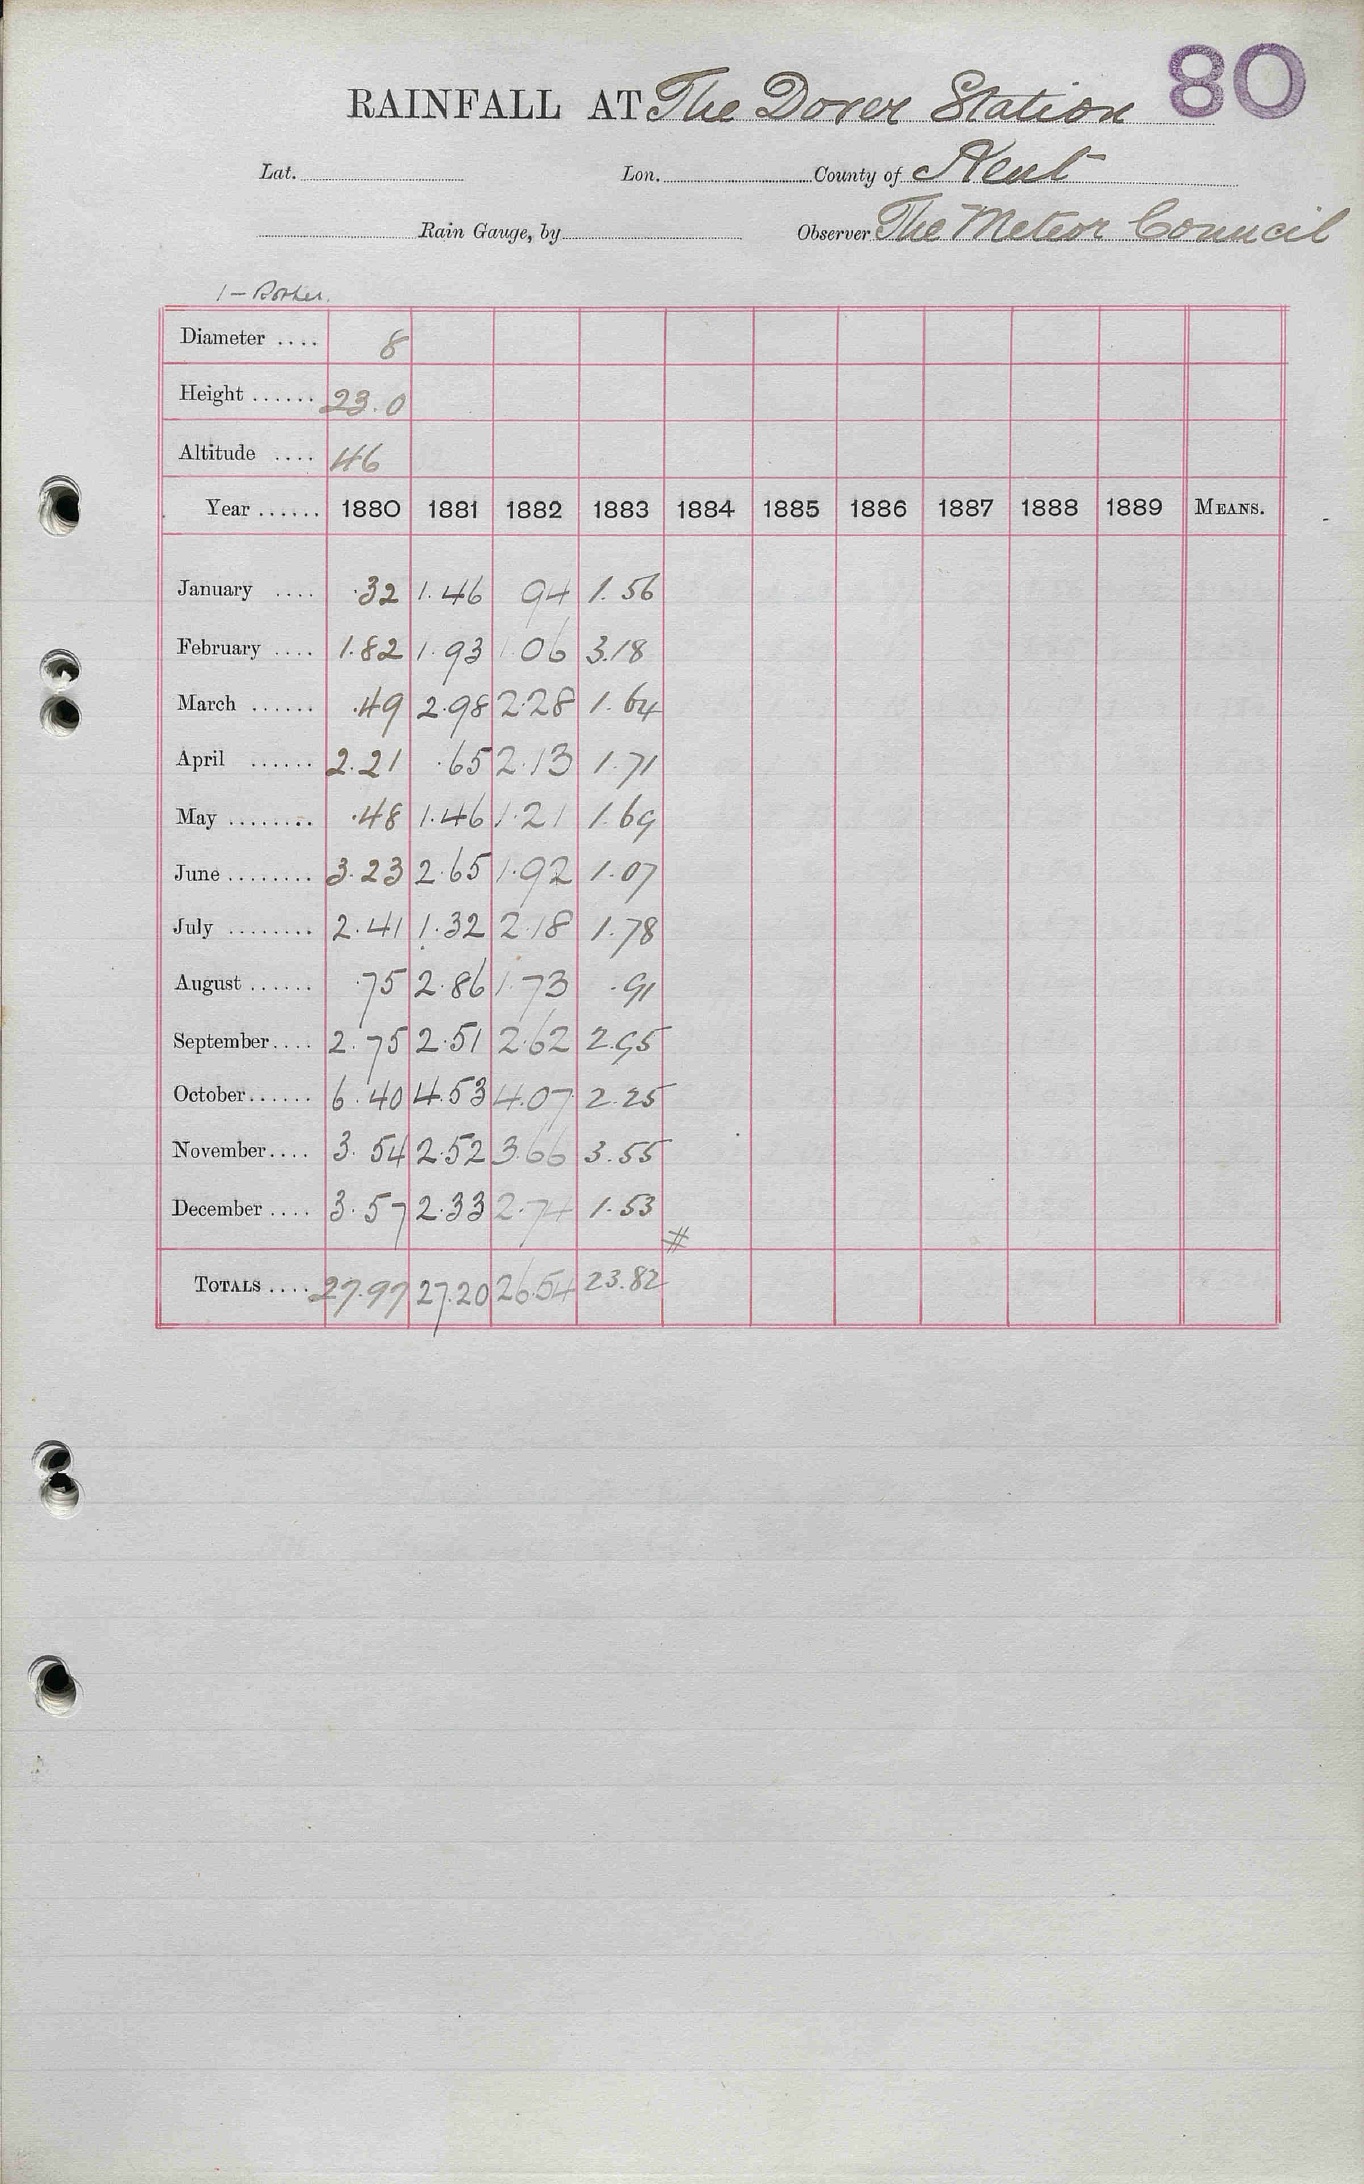 80
RAINFALL AT The Dover Station
Lat. Lon. County of Kent
Rain Gauge, by Observer The Meteor Council
1 – Rother.
Diameter .... 8
Height ...... 23.0
Altitude .... 46
Year ...... 1880 1881 1882 1883 1884 1885 1886 1887 1888 1889 MEANS.
January .... .32 1.46 94 1.56
February .... 1.82 1.93 1.06 3.18
March ...... .49 2.98 2.28 1.64
April ...... 2.21 .65 2.13 1.71
May ........ .48 1.46 1.21 1.69
June ........ 3.23 2.65 1.92 1.07
July ........ 2.41 1.32 2.18 1.78
August ...... .75 2.86 1.73 .91
September .... 2.75 2.51 2.62 2.95
October ...... 6.40 4.53 4.07 2.25
November .... 3.54 2.52 3.66 3.55
December .... 3.57 2.33 2.74 1.53
#
TOTALS .... 27.97 27.20 26.54 23.82